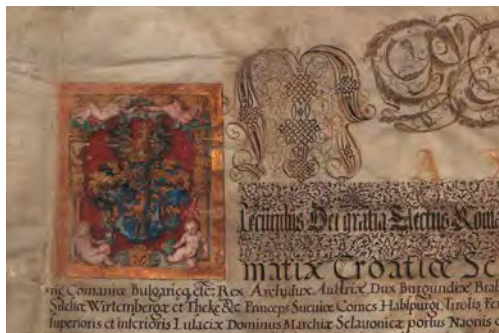 Secundus Dei gratia Electus Roma
matiæ Croatiæ Sc
niæ Comaniæ Bulgariæq, etc: Rex Archidux Austriæ Dux Burgundiæ Brab
Silesiæ Wirtembergæ et Thekæ &c Princeps Sueviæ Comes Habspurgi, Tirolis Fer
superioris et inferioris Lusaciæ Dominus Marchiæ Sclavonicæ, portus Naonis e